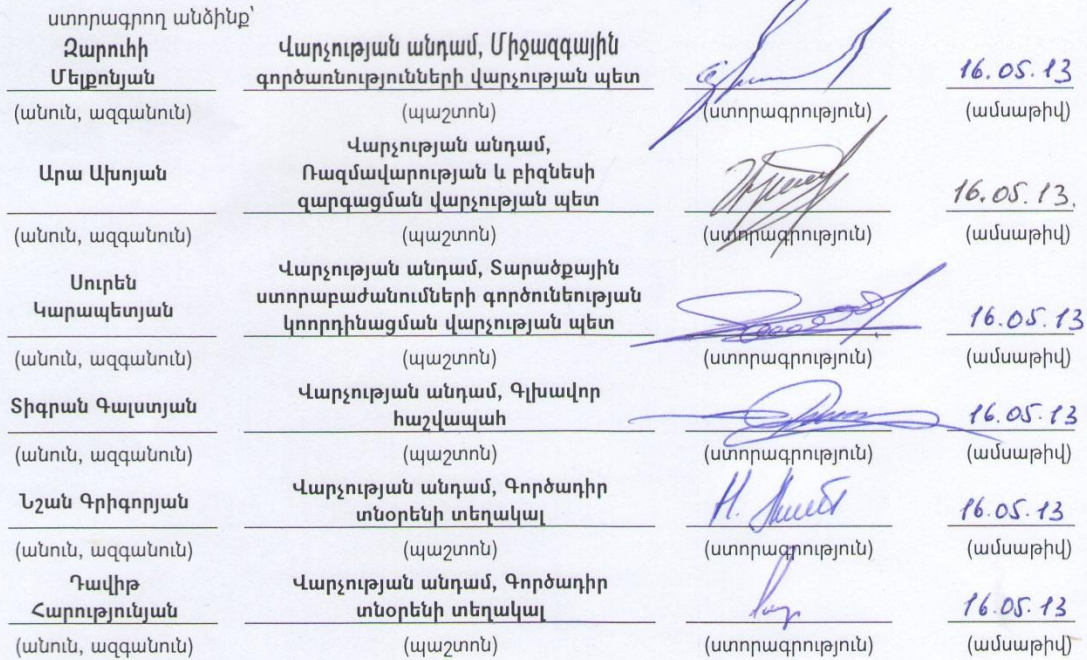 ստորագրող անձինք՝
Զարուհի Վարչության անդամ, Միջազգային
Մելքոնյան գործառնությունների վարչության պետ 16.05.13
(անուն, ազգանուն) (պաշտոն) (ստորագրություն) (ամսաթիվ)
Վարչության անդամ,
Արա Ախոյան Ռազմավարության և բիզնեսի
զարգացման վարչության պետ 16.05.13.
(անուն, ազգանուն) (պաշտոն) (ստորագրություն) (ամսաթիվ)
Սուրեն Վարչության անդամ, Տարածքային
Կարապետյան ստորաբաժանումների գործունեության
կոորդինացման վարչության պետ 16.05.13
(անուն, ազգանուն) (պաշտոն) (ստորագրություն) (ամսաթիվ)
Տիգրան Գալստյան Վարչության անդամ, Գլխավոր
հաշվապահ 16.05.13
(անուն, ազգանուն) (պաշտոն) (ստորագրություն) (ամսաթիվ)
Նշան Գրիգորյան Վարչության անդամ, Գործադիր
տնօրենի տեղակալ 16.05.13
(անուն, ազգանուն) (պաշտոն) (ստորագրություն) (ամսաթիվ)
Դավիթ Վարչության անդամ, Գործադիր
Հարությունյան տնօրենի տեղակալ 16.05.13
(անուն, ազգանուն) (պաշտոն) (ստորագրություն) (ամսաթիվ)